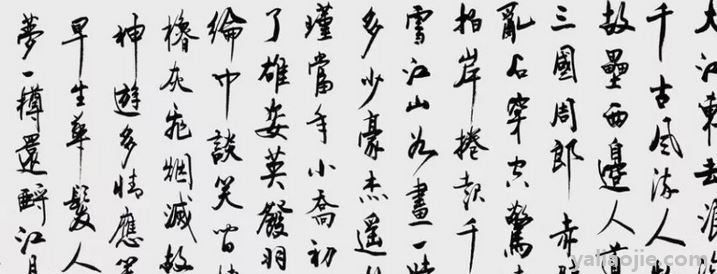 大江東去浪
千古風流人
故壘西邊人道
三國周郎赤
亂石穿空驚
拍岸捲起千
雪江山如畫一時
多少豪杰遙
瑾當年小喬初
了雄姿英發羽
綸巾談笑間
櫓灰飛烟滅故
神遊多情應笑
早生華髮人
夢一樽還酹江月
yaliaojie.com